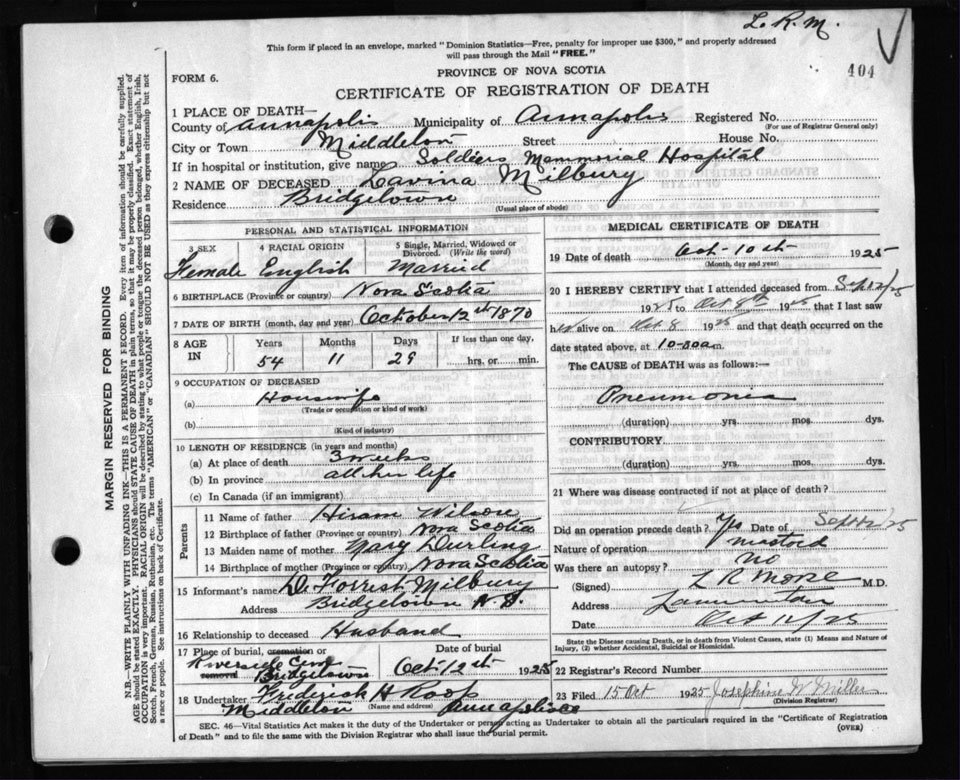 L. R. M.
This form if placed in an envelope, marked "Dominion Statistics—Free, penalty for improper use $300," and properly addressed
will pass through the Mail "FREE."
404
FORM 6.
PROVINCE OF NOVA SCOTIA
CERTIFICATE OF REGISTRATION OF DEATH
1 PLACE OF DEATH—
County of Annapolis Municipality of Annapolis Registered No.
(For use of Registrar General only)
City or Town Middleton Street House No.
If in hospital or institution, give name Soldiers Memmorial Hospital
2 NAME OF DECEASED Lavina Milbury
Residence Bridgetown
(Usual place of abode)
PERSONAL AND STATISTICAL INFORMATION
3 SEX 4 RACIAL ORIGIN 5 Single, Married, Widowed or Divorced. (Write the word)
Female English Married
6 BIRTHPLACE (Province or country) Nova Scotia
7 DATE OF BIRTH (month, day and year) October 12th 1870
8 AGE IN Years Months Days If less than one day,
54 11 29 hrs. or min.
9 OCCUPATION OF DECEASED
(a) Housewife
(Trade or occupation or kind of work)
(b)
(Kind of industry)
10 LENGTH OF RESIDENCE (in years and months)
(a) At place of death 3 weeks
(b) In province all her life
(c) In Canada (if an immigrant)
Parents
11 Name of father Hiram Wilson
12 Birthplace of father (Province or country) Nova Scotia
13 Maiden name of mother Mary Durling
14 Birthplace of mother (Province or country) Nova Scotia
15 Informant's name De Forrest Milbury
Address Bridgetown N.S.
16 Relationship to deceased Husband
17 Place of burial, cremation or removal Riverside Cem Bridgetown Oct. 12th 1925
18 Undertaker Frederick H Roop
(Name and address)
Middleton Annapolis Co
MEDICAL CERTIFICATE OF DEATH
19 Date of death Oct-10th 1925
(Month, day and year)
20 I HEREBY CERTIFY that I attended deceased from Sept 12/25
1925 to Oct 8th 1925 that I last saw
her alive on Oct 8 1925 and that death occurred on
date stated above, at 10-00 a.m.
The CAUSE of DEATH was as follows:—
Pneumonia
(duration) yrs. mos. dys.
CONTRIBUTORY
(duration) yrs. mos. dys.
21 Where was disease contracted if not at place of death?
Did an operation precede death? Yes Date of Sept 12/25
Nature of operation mastoid
Was there an autopsy? No
(Signed) L R Morse M.D.
Address Lawrencetown
Date Oct 12/25
State the Disease causing Death, or in death from Violent Causes, state (1) Means and Nature of
Injury, (2) whether Accidental, Suicidal or Homicidal.
22 Registrar's Record Number
23 Filed 15 Oct 1925 Josephine W Miller
(Division Registrar)
SEC. 46—Vital Statistics Act makes it the duty of the Undertaker or person acting as Undertaker to obtain all the particulars required in the "Certificate of Registration
of Death" and to file the same with the Division Registrar who shall issue the burial permit.
(OVER)
MARGIN RESERVED FOR BINDING
N.B.—WRITE PLAINLY WITH UNFADING INK—THIS IS A PERMANENT RECORD. Every item of information should be carefully supplied.
AGE should be stated EXACTLY. PHYSICIANS should STATE CAUSE OF DEATH in plain terms, so that it may be properly classified. Exact statement of
OCCUPATION is very important. RACIAL ORIGIN will be described by stating to what people or tongue the deceased person belonged, whether English, Irish,
Scotch, French, German, Russian, Ruthenian, etc. The terms "AMERICAN" or "CANADIAN" SHOULD NOT BE USED as they express citizenship but not
a race or people. See instructions on back of Certificate.